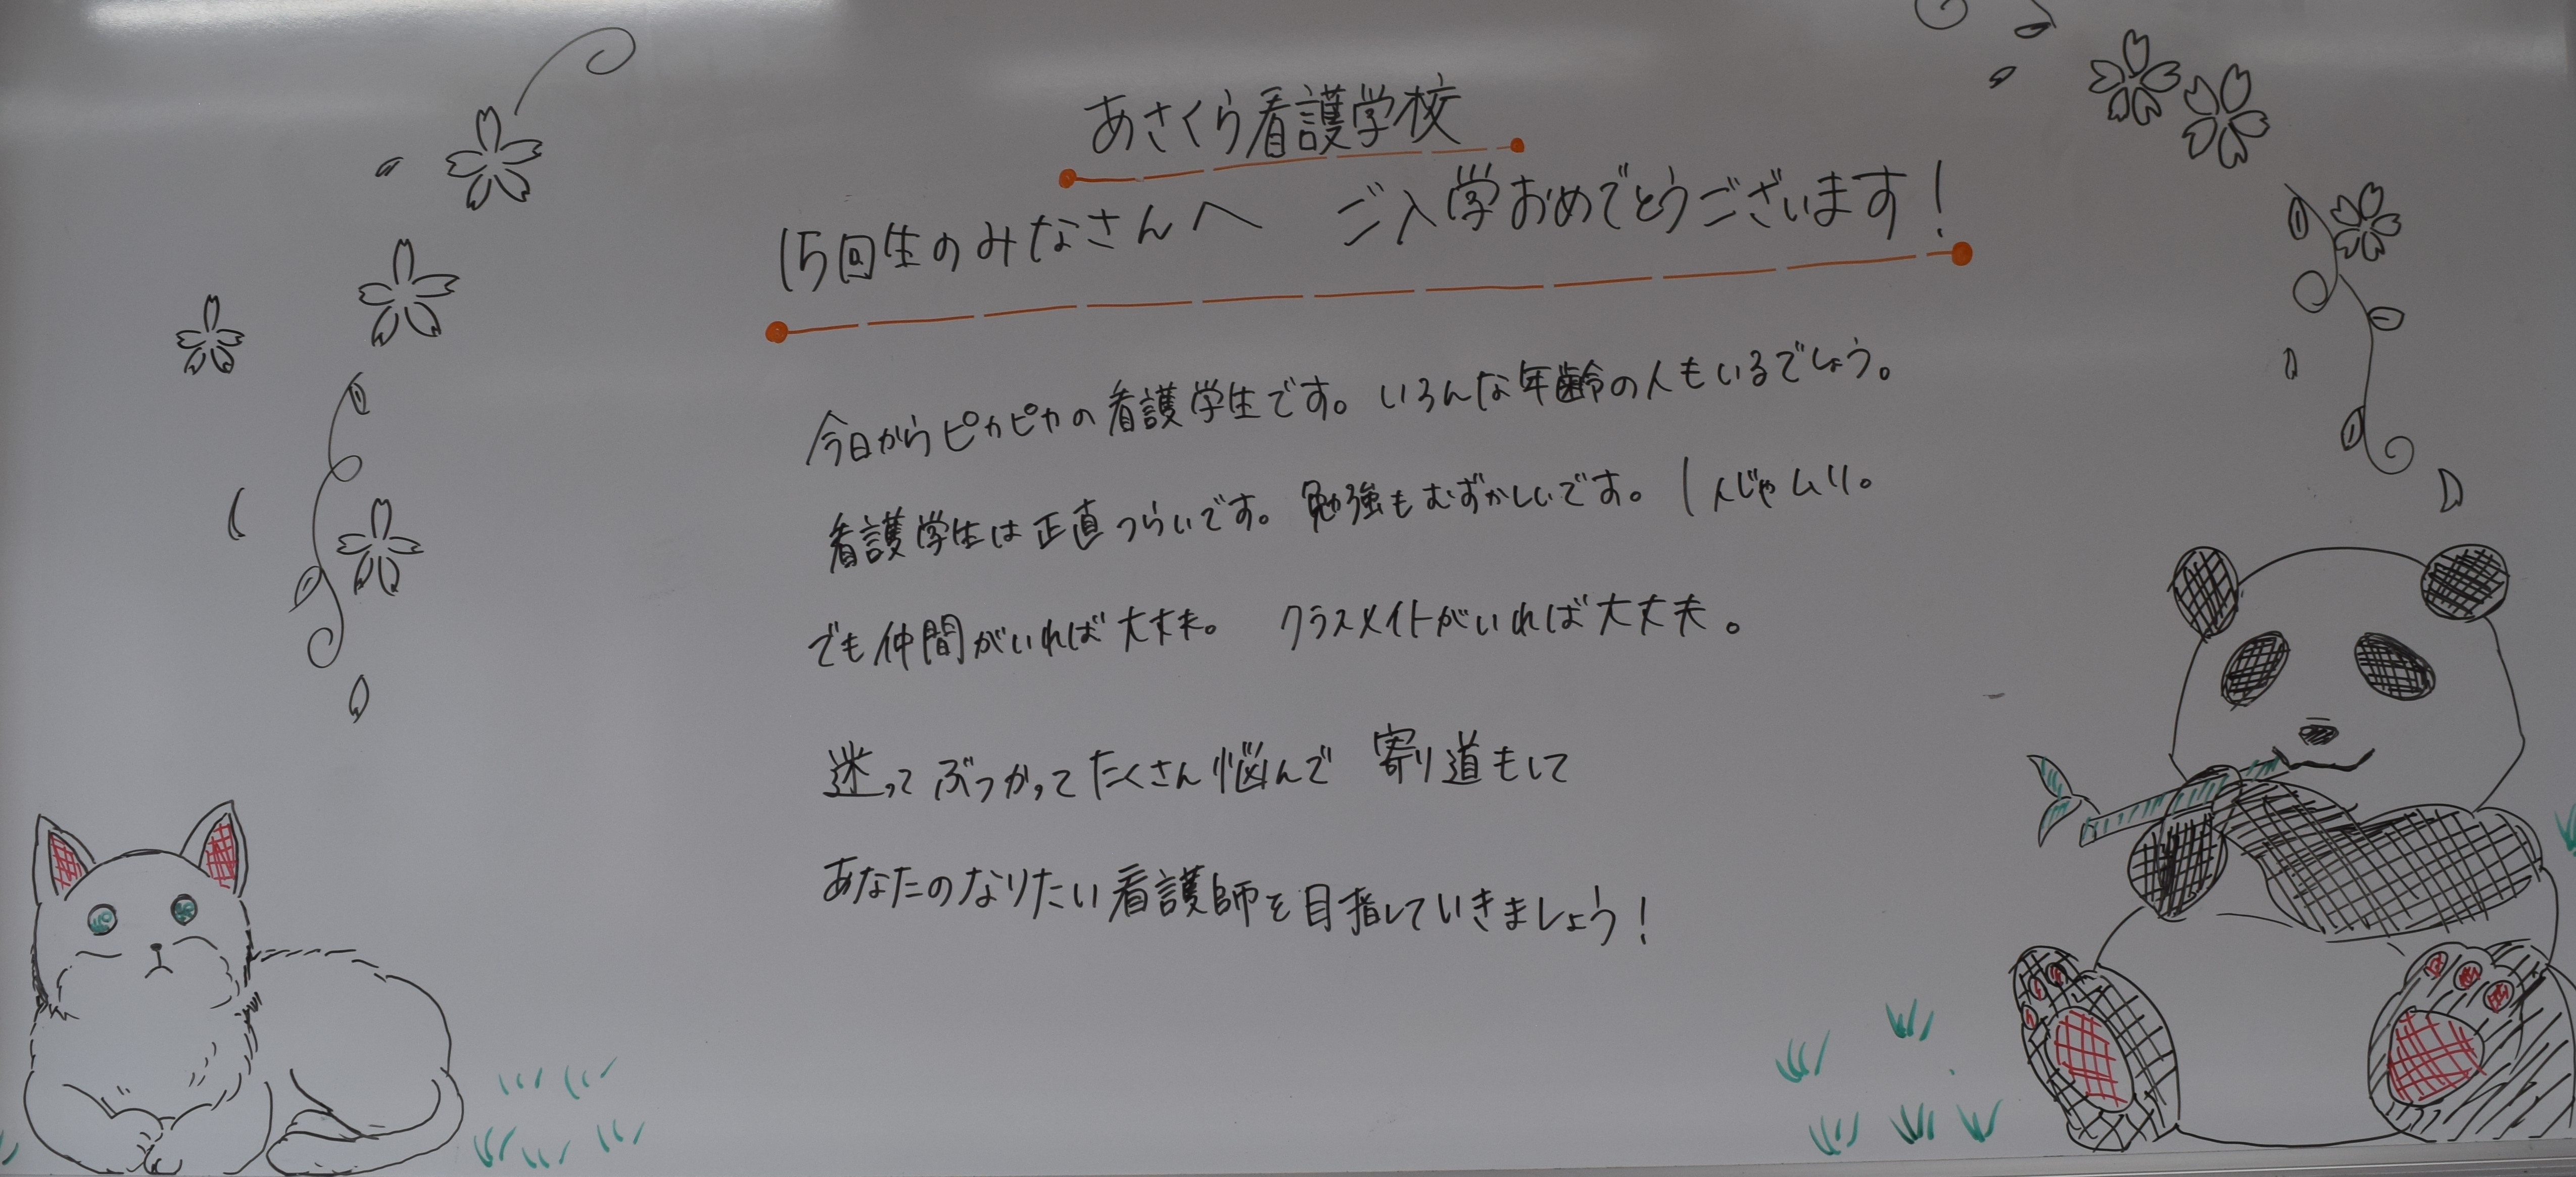 あさくら看護学校
15回生のみなさんへ　ご入学おめでとうございます！
今日からピカピカの看護学生です。いろんな年齢の人もいるでしょう。
看護学生は正直つらいです。勉強もむずかしいです。1人じゃムリ。
でも仲間がいれば大丈夫。　クラスメイトがいれば大丈夫。
迷ってぶつかってたくさん悩んで　寄り道もして
あなたのなりたい看護師を目指していきましょう！